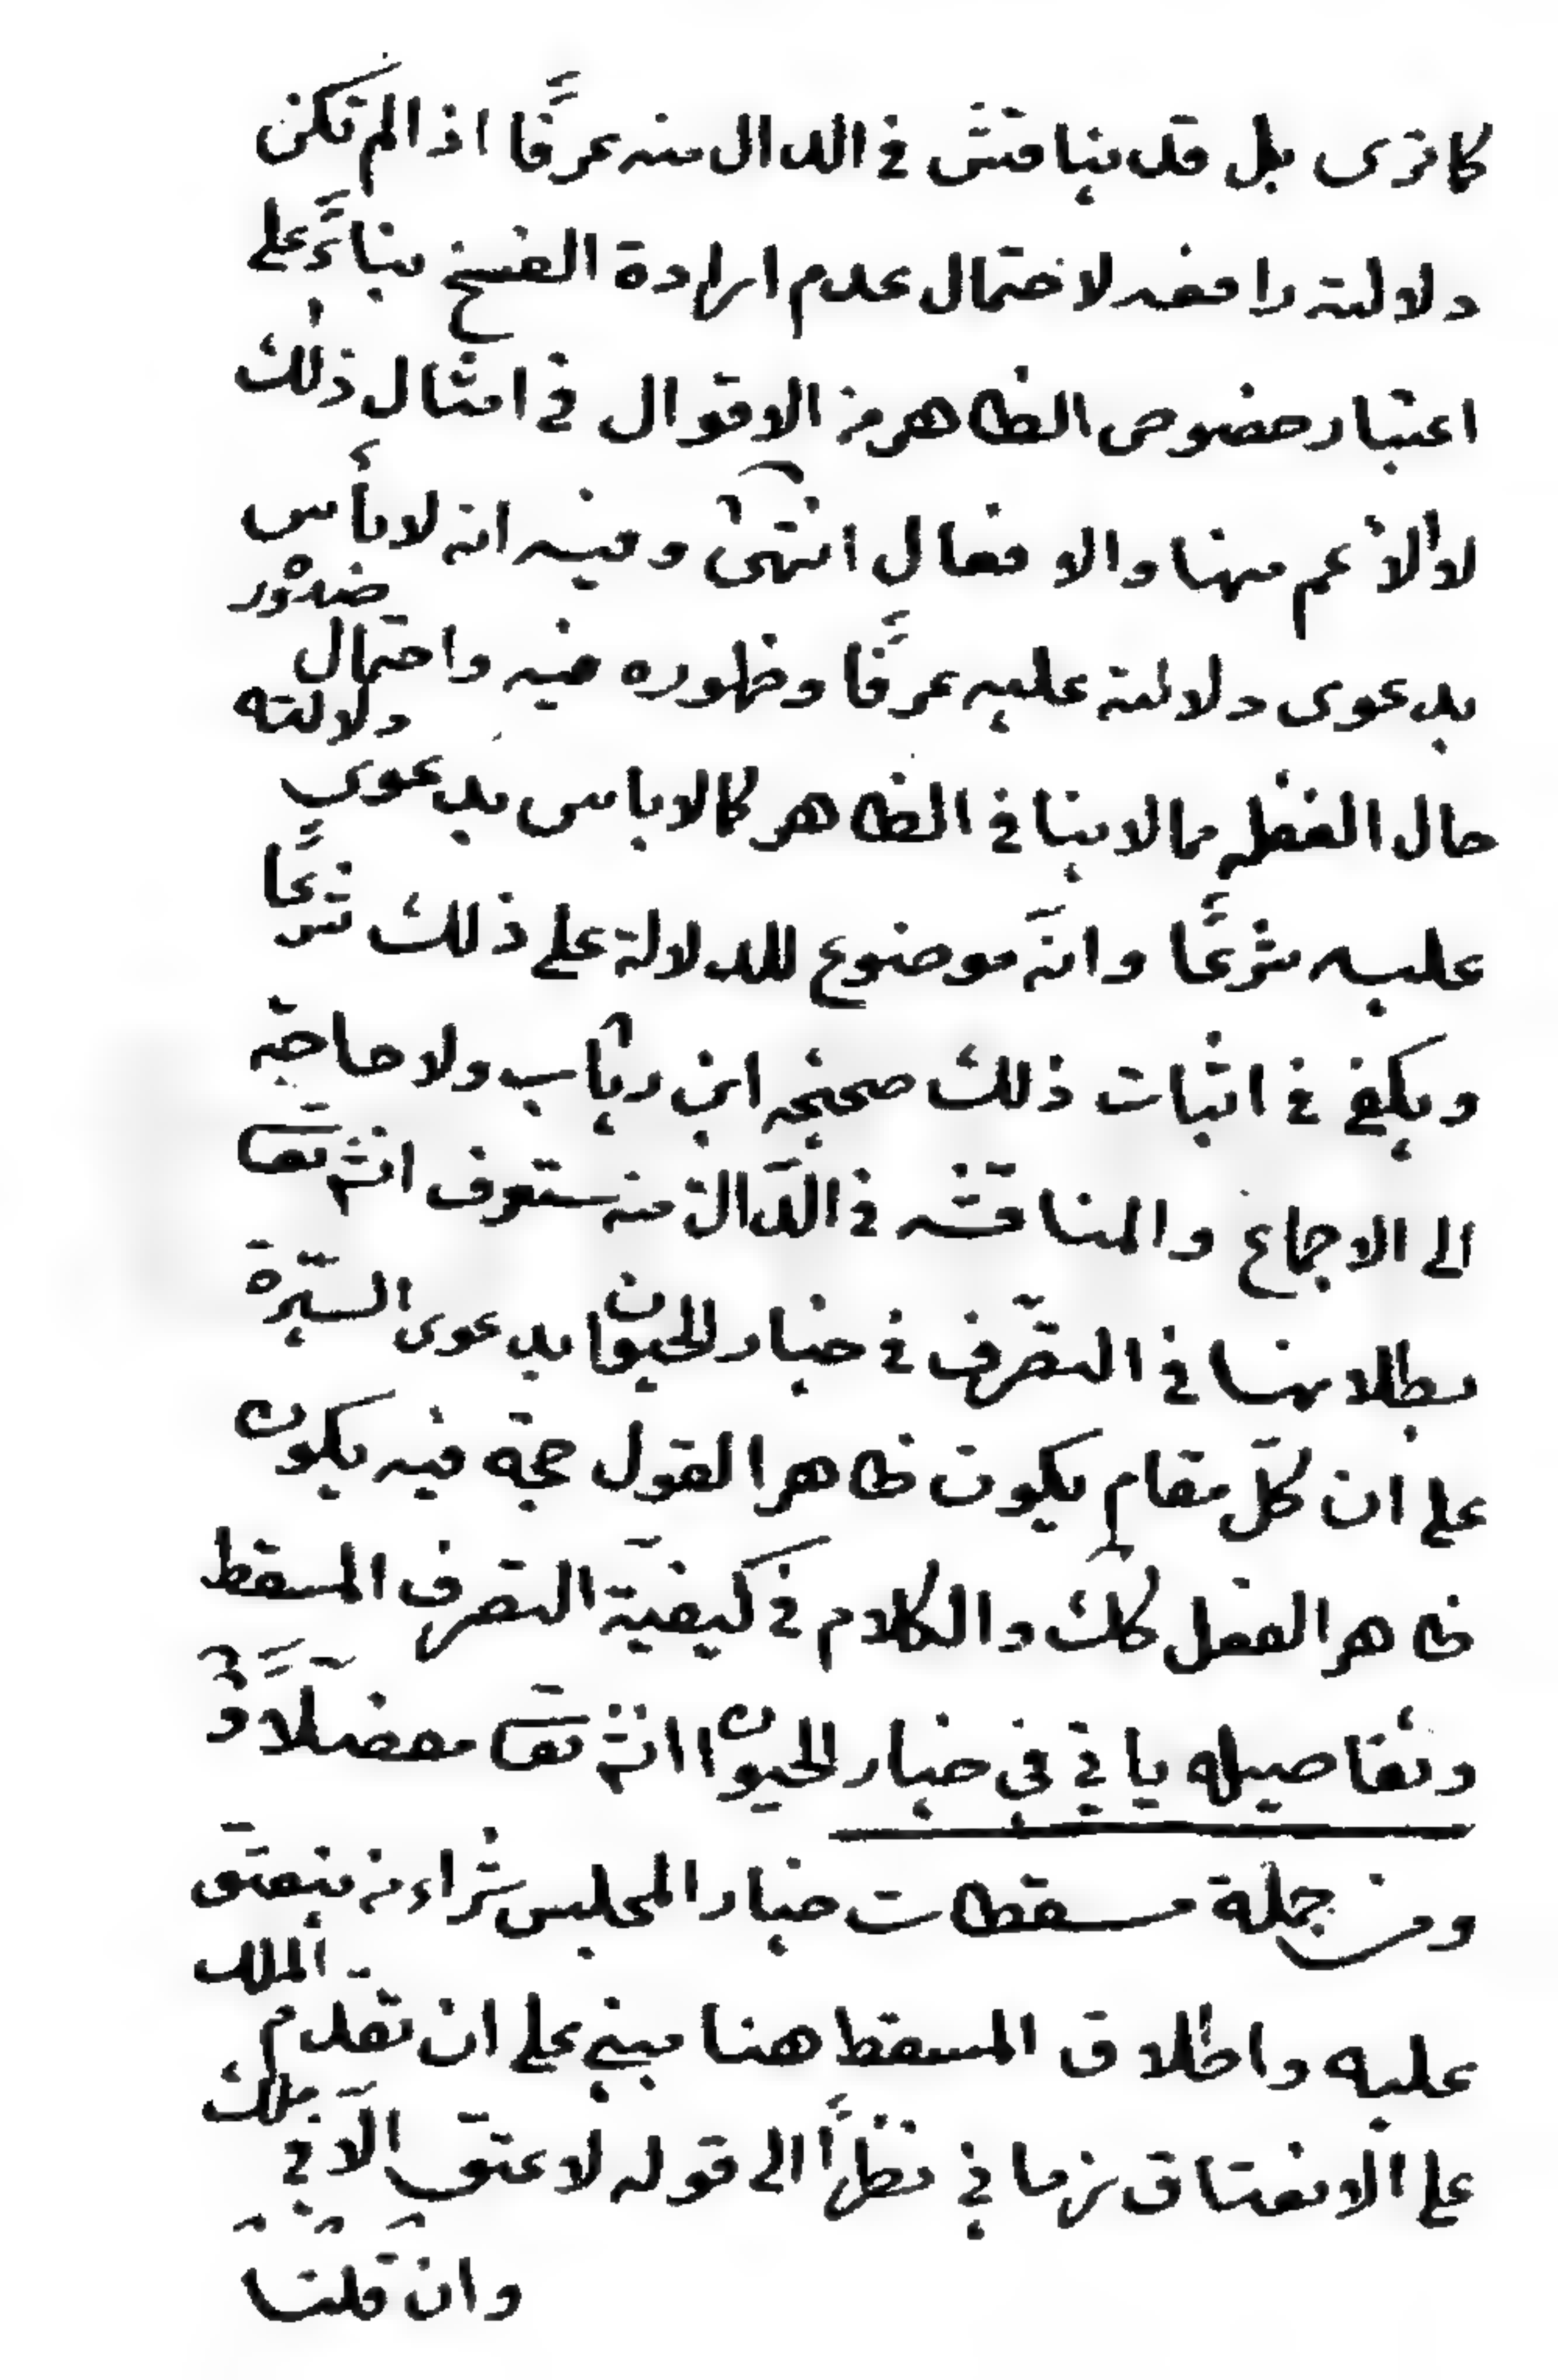 كما ترى بل قد يناقش في الدال منه عرفًا اذا لم تكن
دلالته رافعه لاحتمال عدم ارادة الفسخ بناءً على
اعتبار خصوص الظاهر من الاقوال في امثال ذلك
لا الاعم منها والافعال انتهى وفيه انه لا بأس
بدعوى دلالته عليه عرفًا وظهوره فيه واحتمال صدور
حال الغفله مما لا ينافي الظاهر كما لا باس بدعوى دلالته
عليه شرعًا وانّه موضوع للدلالة على ذلك شرعًا
ويكفي في اثبات ذلك صحيحه ابن رئاب ولا حاجة
الى الاجماع والمناقشه في الدّالة منه ستعرف انش تعا
بطلانها في التصّرف في خيار الحيوان بدعوى السّيرة
على ان كلّ مقام يكون ظاهر القول حجة فيه يكون
ظاهر الفعل كك والكلام في كيفيّة التصرف المسقط
وتفاصيله ياتي في خيار الحيوان انش تعا مفصّلًا و
ومن جملة مسقطات خيار المجلس شراء من ينعتق
عليه واطلاق المسقط هنا مبني على ان تقدم الملك
على الانعتاق زماني نظرًا الى قوله لا عتق الّا في ملك
وان قلنا